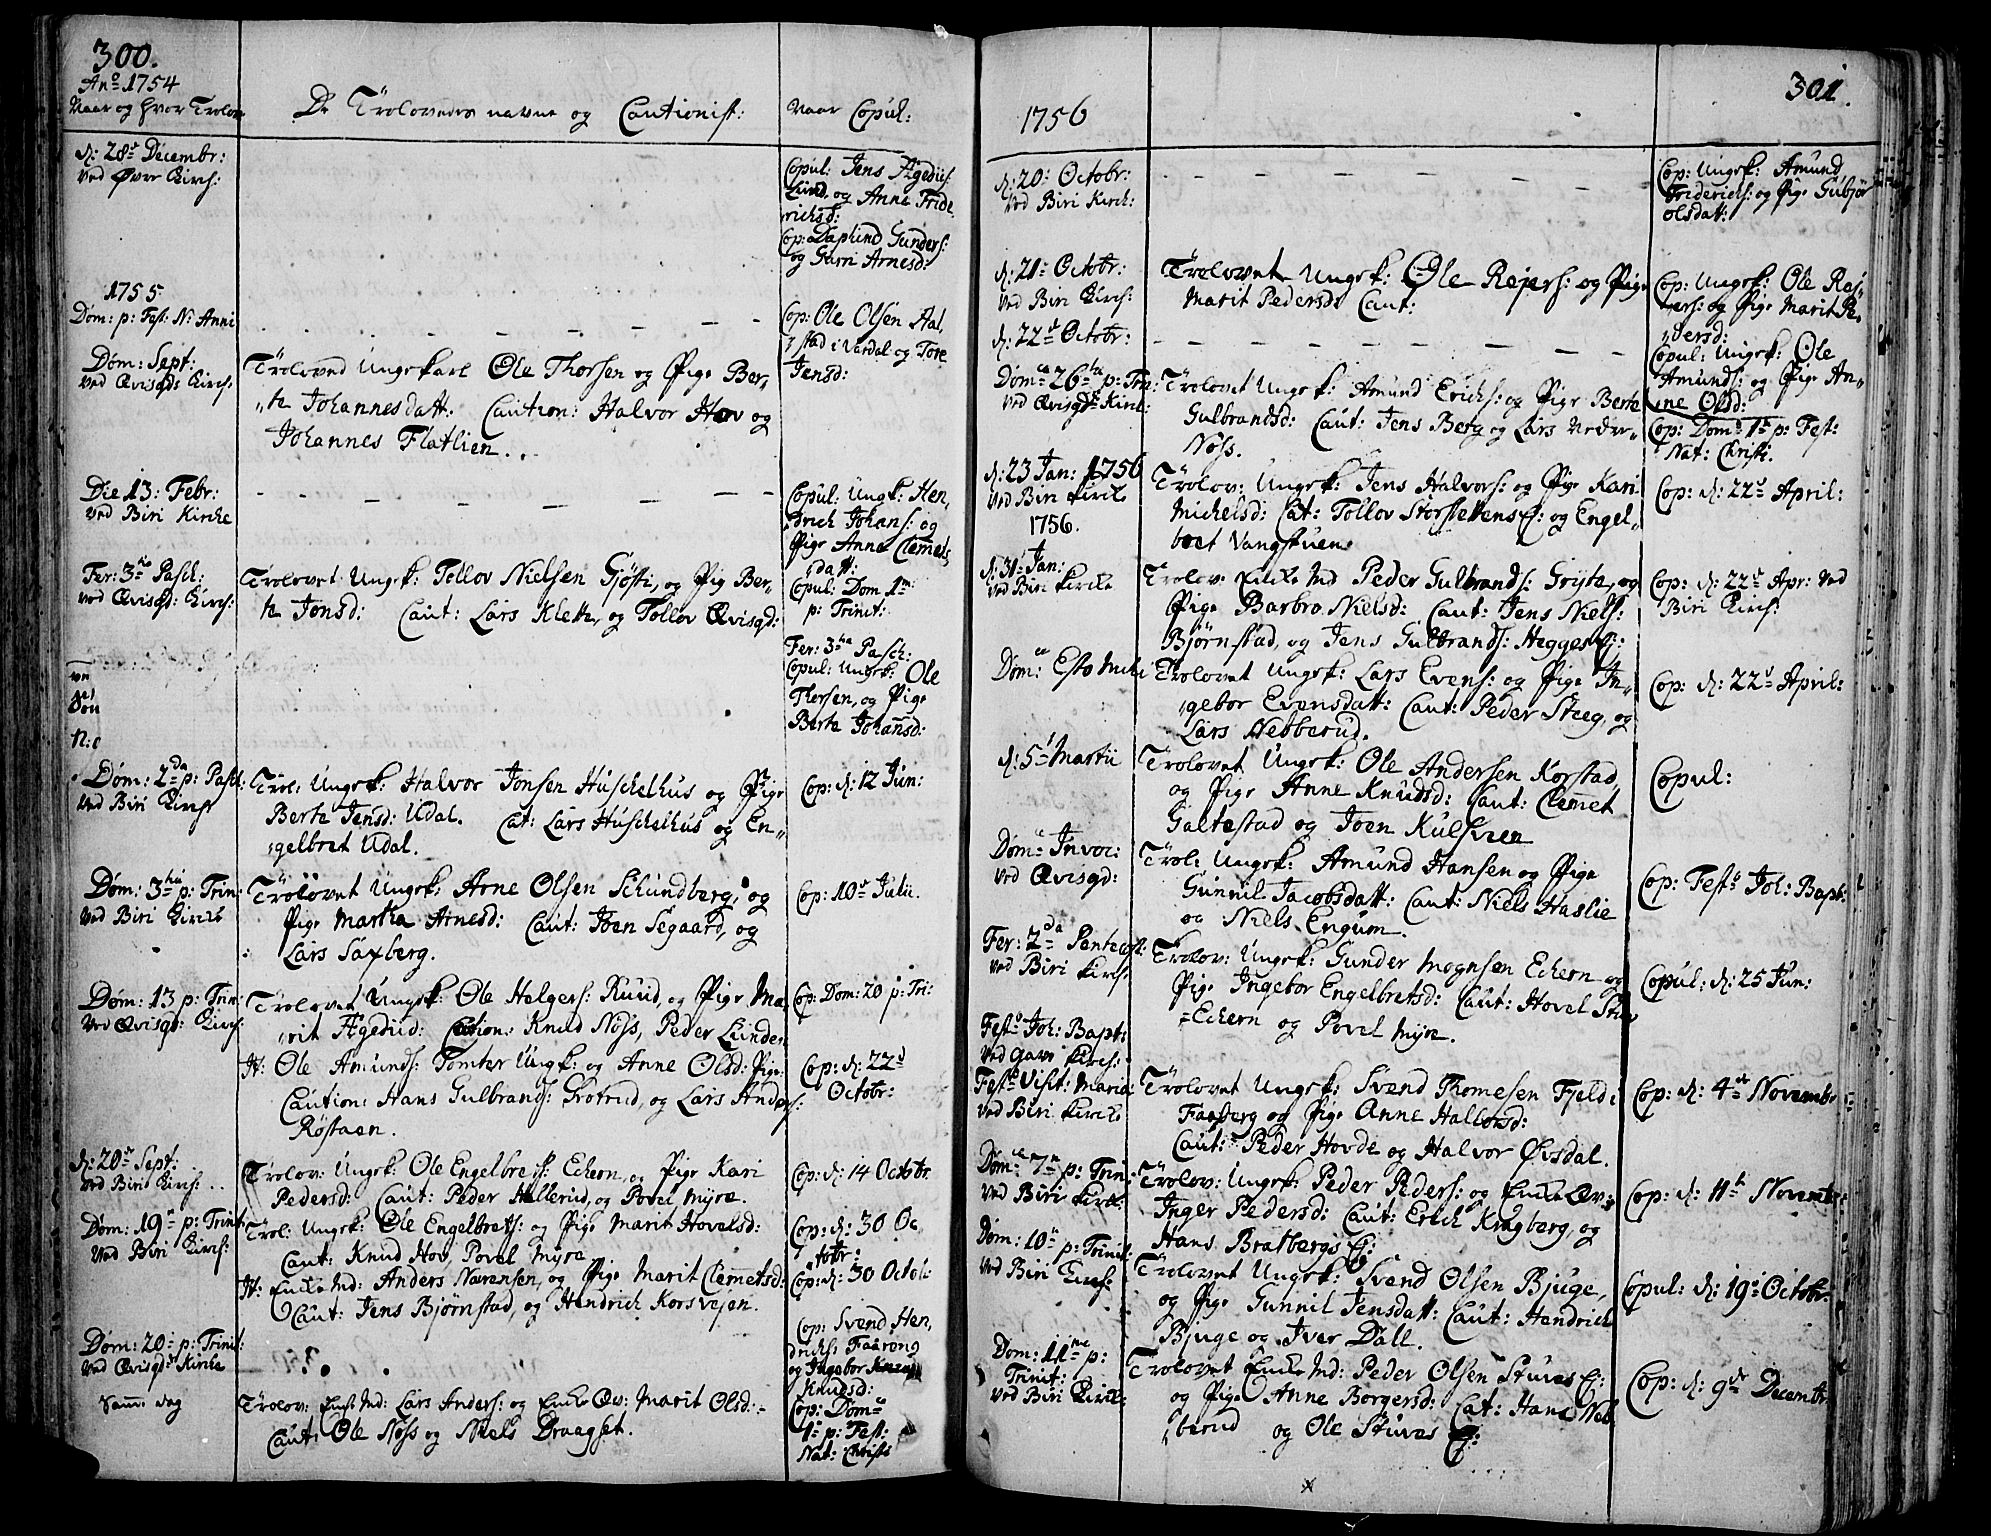 300.
Anº 1754
Naar og hvor Trolov
De Trolovedes navne og Cautionist:
Naar Copul:
d: 28de Decembr:
ved Øvre Kirch:
Copul: Jens Ægedies
Lund, og Anne Fride,
richsd:
Cop: Daphind Gunders:
og Guri Arnesd:
1755
Dom: p: Fest: N: Anni
Cop: Ole Olsen Aal,
stad i Vardal og Tore
Jensd:
Dom: Sept:
ved Qvisgds Kirch:
Troloved Ungekarl Ole Thorsen og Pige Ber,,
,,te Johannesdatt: Caution: Halvor Hov og
Johannes Flatlien.
Die 13: Febr:
ved Biri Kirche
Copul: Ungk: Hen,
drich Johans: og
Pige Anne Clemets
datt:
Fer: 3tia Pasch:
ved Qvisgd: Kirch:
Trolovet Ungek: Tollov Nielsen Gjøsti, og Pig Ber,,
te Jonsd: Caut: Lars Klette, og Tollov Qvisgd:
Copul: Dom 1ma
p: Trinit:
Fer: 3tia Pasch:
Copul: Ungek: Ole
Thorsen, og Pige
Berte Johansd:
Dom: 2da p: Pasch:
ved Biri Kirche
Trol: Ungek: Halvor Jonsen Huschelhus og Pige
Berte Jensd: Udal. Cat: Lars Huschelhus og En,,
,,gelbret Udal.
Cop: d: 12 Jun:
Dom: 3tia p: Trin:
ved Biri Kirche
Trolovet Ungek: Arne Olsen Schundberg, og
Pige Martha Arnesd: Caut: Joen Segaard, og
Lars Saxberg.
Cop: 10de Julii.
Dom: 13 p: Trin:
ved Qvisgd: Kirch:
Trolovet Ungk: Ole Helgers: Ruud, og Pige Ma,
,,rit Ægediid: Cation: Knud Nøss, Peder Lunden
Cop: Dom: 20 p: Tri:
It: Ole Amunds: Tomter Ungk: og Anne Olsd: Pige:
Caution: Hans Gulbrands: Skotrud, og Lars Anders:
Røstaen.
Cop: d: 22de
Octobr:
d: 20de Sept:
ved Biri Kirch:
Trolov: Ungek: Ole Engelbrets: Echern, og Pige Kari
Pedersd: Caut: Peder Hallerud, og Povel Myre.
Cop: d: 14 Octobr
Dom: 19de p: Trinit:
ved Biri Kirch:
Trol: Ungek: Ole Engelbrets: og Pige Marit Hovelsd:
Caut: Knud Hov, Povel Myre
Cop: d: 30 Oc
tobr:
It: Enke Md: Anders Narensen, og Pige Marit Clemetsd:
Caut: Jens Bjørnstad, og Hendrich Korsvejen.
Cop: d: 30 Octob:
Dom: 20de p: Trinit:
ved Qvisgds Kirche
Cop: Svend Hen,
drichs: Faarong
og Ingebor
Knudsd:
Samme dag
Trolov: Enke Md: Lars Anders: og Enke Qv: Marit Olsd:
Caut: Ole Nøss og Niels Draaget.
Cop: Dom:
1ma p: Fest:
Nat: Christi
1756
301.
d: 20: Octobr:
ved Biri Kirch:
Cop: Ungek: Amund
Friderichs: og Pige Gubjør
Olsdatt:
d: 21de Octobr:
ved Biri Kirch:
Trolovet Ungek: Ole Rejers: og Pige
Marit Pedersd: Caut:
Cop: Ungek: Ole Rej,
,,ers: og Pige Marit Pe,
,,dersd:
d: 22de Octobr:
Copul: Ungek: Ole
Amunds: og Pige An,,
,,ne Olsd:
Domca 26ta p: Trin:
ved Qvisgds Kirch:
Trolovet Ungek: Amund Erichs: og Pige Berte
Gulbrandsd: Caut: Jens Berg og Lars Neder,,
Nøss.
Cop: Domca 1ma p: Fest:
Nat: Christi.
d: 23 Jan: 1756
ved Biri Kirche
1756.
Trolov: Ungek: Jens Halvors: og Pige Kari
Michelsd: Cat: Tollov Storslettens E: og Engel,,
bret Vangstuen.
Cop: d: 22de April:
d: 31de Jan:
ved Biri Kirche
Trolov: Enke Md Peder Gulbrands: Gryte, og
Pige Barbro Nielsd: Caut: Jens Niels:
Bjørnstad, og Jens Gulbrands: Hegges E:
Cop: d: 22de Apr: ved
Biri Kirch:
Domca Esto Mihi
Trolovet Ungek: Lars Evens: og Pige In,,
,,gebor Evensdatt: Caut: Peder Steeg, og
Lars Nebberud.
Cop: d: 22de April:
d: 5te Martii
Trolovet Ungek: Ole Andersen Korstad
og Pige Anne Knudsd: Caut: Clemet
Galtestad og Joen Kulsveen
Copul:
Domca Invoc:
ved Qvisgd:
Trol: Ungek: Amund Hansen og Pige
Gunnil Jacobsdatt: Caut: Niels Haslie
og Niels Engum.
Cop: Festo Joh: Bapt:
Fer: 2da Pentecost:
ved Biri Kirch:
Trolov: Ungek: Gunder Mognsen Echern og
Pige Ingebor Engelbretsd: Caut: Hovel
=Echern og Povel Myre.
Copul: d: 25 Jun:
Festo Joh: Bapt:
ved Kirch:
Festo Visit: Mariæ
ved Biri Kirche
Trolovet Ungek: Svend Thomesen Fjeld i
Faaberg og Pige Anne Hallorsd:
Caut: Peder Hovde og Halvor Øvsdal.
Cop: d: 4de Novembr
Domca 7ma p: Trin:
ved Biri Kirch:
Trolov: Ungek: Peder Peders: og Enke Qv:
Inger Pedersd: Caut: Erich Kragberg, og
Hans Bratbergs E:
Cop: d: 11te Novembr:
Dom: 10ma p: Trinit:
ved Biri Kirch:
Trolovet Ungek: Svend Olsen Bjuge,
og Pige Gunnil Jensdatt: Caut: Hendrich
Bjuge og Iver Dall.
Copul: d: 19de Octobr:
Dom: 11me p:
Trinit:
ved Biri Kirch:
Trolovet Enke Md: Peder Olsen Stuves E:
og Pige Anne Borgersd: Cat: Hans Neb,
,,berud og Ole Stuves E:
Cop: d: 9de Decembr